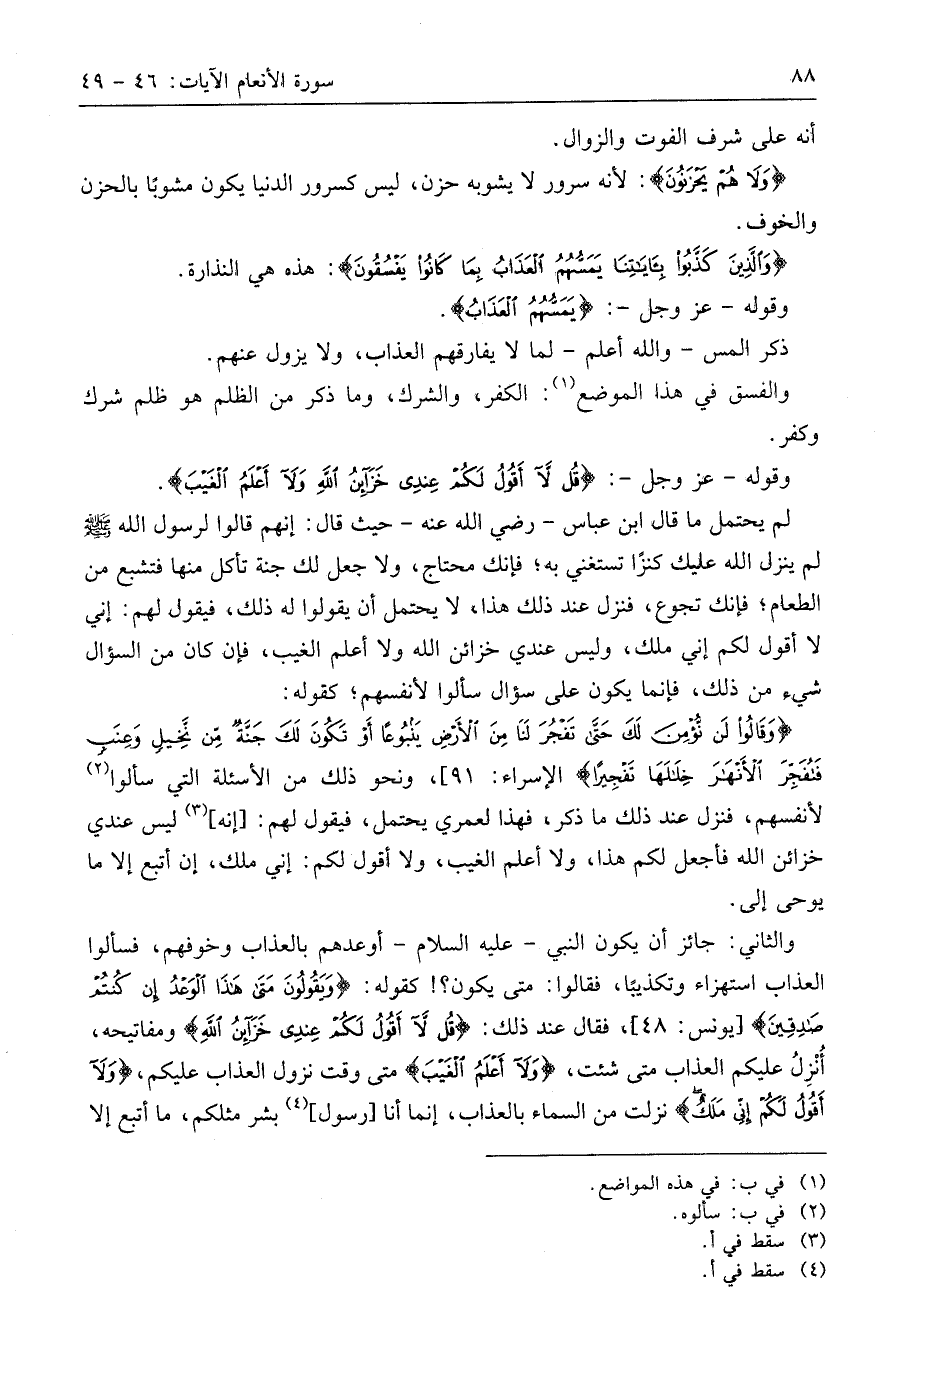 ٨٨
سورة الأنعام الآيات: ٤٦ - ٤٩
أنه على شرف الفوت والزوال.
﴿وَلَا هُمْ يَحْزَنُونَ﴾: لأنه سرور لا يشوبه حزن، ليس كسرور الدنيا يكون مشوبًا بالحزن
والخوف.
﴿وَٱلَّذِينَ كَذَّبُوا۟ بِـَٔايَـٰتِنَا يَمَسُّهُمُ ٱلْعَذَابُ بِمَا كَانُوا۟ يَفْسُقُونَ﴾: هذه هي النذارة.
وقوله - عز وجل -: ﴿يَمَسُّهُمُ ٱلْعَذَابُ﴾.
ذكر المس - والله أعلم - لما لا يفارقهم العذاب، ولا يزول عنهم.
والفسق في هذا الموضع(١): الكفر، والشرك، وما ذكر من الظلم هو ظلم شرك
وكفر.
وقوله - عز وجل -: ﴿قُل لَّآ أَقُولُ لَكُمْ عِندِى خَزَآئِنُ ٱللَّهِ وَلَآ أَعْلَمُ ٱلْغَيْبَ﴾.
لم يحتمل ما قال ابن عباس - رضي الله عنه - حيث قال: إنهم قالوا لرسول الله ﷺ
لم ينزل الله عليك كنزًا تستغني به؛ فإنك محتاج، ولا جعل لك جنة تأكل منها فتشبع من
الطعام؛ فإنك تجوع، فنزل عند ذلك هذا، لا يحتمل أن يقولوا له ذلك، فيقول لهم: إني
لا أقول لكم إني ملك، وليس عندي خزائن الله ولا أعلم الغيب، فإن كان من السؤال
شيء من ذلك، فإنما يكون على سؤال سألوا لأنفسهم؛ كقوله:
﴿وَقَالُوا۟ لَن نُّؤْمِنَ لَكَ حَتَّىٰ تَفْجُرَ لَنَا مِنَ ٱلْأَرْضِ يَنۢبُوعًا أَوْ تَكُونَ لَكَ جَنَّةٌ مِّن نَّخِيلٍ وَعِنَبٍ
فَتُفَجِّرَ ٱلْأَنْهَـٰرَ خِلَـٰلَهَا تَفْجِيرًا﴾ الإسراء: ٩١]، ونحو ذلك من الأسئلة التي سألوا(٢)
لأنفسهم، فنزل عند ذلك ما ذكر، فهذا لعمري يحتمل، فيقول لهم: [إنه](٣) ليس عندي
خزائن الله فأجعل لكم هذا، ولا أعلم الغيب، ولا أقول لكم: إني ملك، إن أتبع إلا ما
يوحى إلى.
والثاني: جائز أن يكون النبي - عليه السلام - أوعدهم بالعذاب وخوفهم، فسألوا
العذاب استهزاء وتكذيبًا، فقالوا: متى يكون؟! كقوله: ﴿وَيَقُولُونَ مَتَىٰ هَـٰذَا ٱلْوَعْدُ إِن كُنتُمْ
صَـٰدِقِينَ﴾ [يونس: ٤٨]، فقال عند ذلك: ﴿قُل لَّآ أَقُولُ لَكُمْ عِندِى خَزَآئِنُ ٱللَّهِ﴾ ومفاتيحه،
أُنْزِلُ عليكم العذاب متى شئت، ﴿وَلَآ أَعْلَمُ ٱلْغَيْبَ﴾ متى وقت نزول العذاب عليكم، ﴿وَلَآ
أَقُولُ لَكُمْ إِنِّى مَلَكٌ﴾ نزلت من السماء بالعذاب، إنما أنا [رسول](٤) بشر مثلكم، ما أتبع إلا
(١) في ب: في هذه المواضع.
(٢) في ب: سألوه.
(٣) سقط في أ.
(٤) سقط في أ.